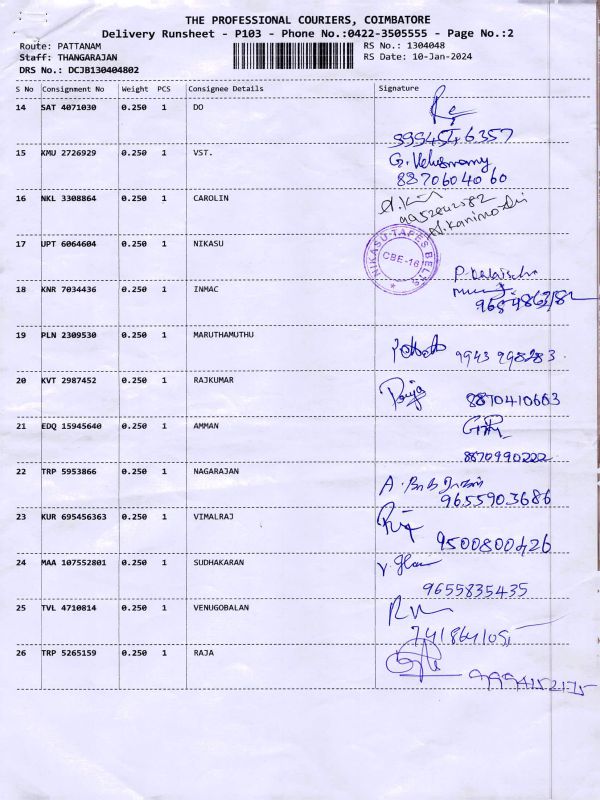 THE PROFESSIONAL COURIERS, COIMBATORE
Delivery Runsheet - P103 - Phone No.:0422-3505555 - Page No.:2
Route: PATTANAM
RS No.: 1304048
Staff: THANGARAJAN
RS Date: 10-Jan-2024
DRS No.: DCJB130404802
S No Consignment No Weight PCS Consignee Details Signature
14 SAT 4071030 0.250 1 DO
15 KMU 2726929 0.250 1 VST.
8870604060
16 NKL 3308864 0.250 1 CAROLIN
17 UPT 6064604 0.250 1 NIKASU
NIKASU TAPES BELTS
CBE-16
18 KNR 7034436 0.250 1 INMAC
19 PLN 2309530 0.250 1 MARUTHAMUTHU
20 KVT 2987452 0.250 1 RAJKUMAR
8870410663
21 EDQ 15945640 0.250 1 AMMAN
8870990222
22 TRP 5953866 0.250 1 NAGARAJAN
9655903686
23 KUR 695456363 0.250 1 VIMALRAJ
9500800426
24 MAA 107552801 0.250 1 SUDHAKARAN
9655835435
25 TVL 4710814 0.250 1 VENUGOBALAN
26 TRP 5265159 0.250 1 RAJA